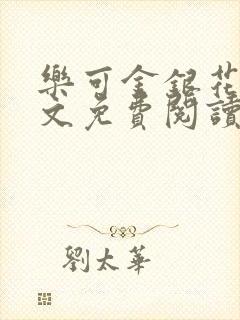 樂可金銀花
文免費閱讀
劉太華